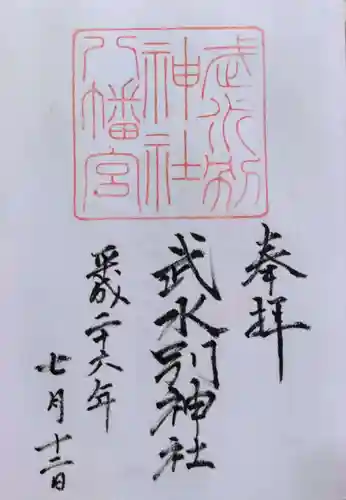 武水別
神社
八幡宮
奉拝
武水別神社
平成二十六年
七月十二日